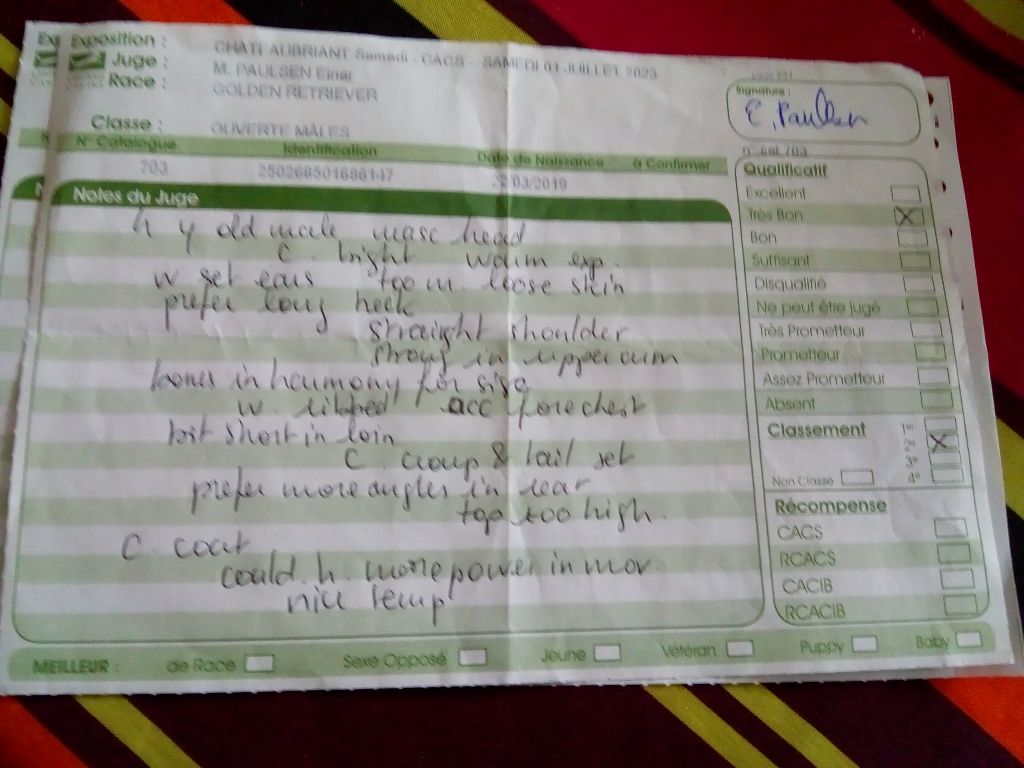 Exposition : CHATEAUBRIANT Samedi - CACS - SAMEDI 01 JUILLET 2023
Juge : M. PAULSEN Einar
Race : GOLDEN RETRIEVER
Classe : OUVERTE MÂLES
Signature :
E. Paulsen
N° Catalogue Identification Date de Naissance à Confirmer
703 250268501686147 03/2019
n° cat 703
Notes du Juge
4 y old male masc head
C. bight warm exp.
w set ears too m. loose skin
prefer long neck
straight shoulder
strong in upperarm
bones in harmony for size
w. ribbed acc forechest
bit short in loin
C. croup & tail set
prefer more angles in rear
top too high.
C. coat
could h. more power in mov.
nice temp
Qualificatif
Excellent
Très Bon X
Bon
Suffisant
Disqualifié
Ne peut être jugé
Très Prometteur
Prometteur
Assez Prometteur
Absent
Classement
1er
2e X
3e
4e
Non Classé
Récompense
CACS
RCACS
CACIB
RCACIB
MEILLEUR : de Race Sexe Opposé Jeune Vétéran Puppy Baby